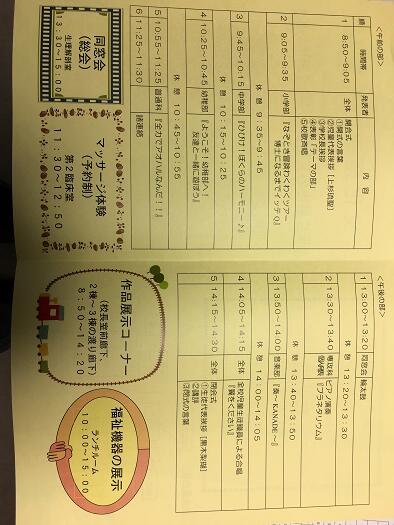 ＜午前の部＞
順 時間帯 発表者 内容
1 8:50～9:05 全体 開会式
①開式の言葉
②児童代表挨拶
③学校長挨拶
④表彰「テーマの部」
⑤校歌斉唱
2 9:05～9:35 小学部 『なぞとき冒険わくわくツアー
博士になるまでイッテQ』
休憩 9:35～9:45
3 9:45～10:15 中学部 『ひびけ！ぼくらのハーモニー♪』
休憩 10:15～10:25
4 10:25～10:45 幼稚部 『ようこそ！幼稚部へ！
友達と一緒に遊ぼう』
休憩 10:45～10:55
5 10:55～11:25 普通科 『全力でアオハルなんだ！！』
6 11:25～11:30 諸連絡
同窓会
（総会）
生理解剖室
13:30～15:00
マッサージ体験
（予約制）
第2臨床室
11:30～12:50
＜午後の部＞
1 13:00～13:20 同窓会 輪太鼓
休憩 13:20～13:30
2 13:30～13:40 専攻科 ピアノ演奏
『プラネタリウム』
休憩 13:40～13:50
3 13:50～14:00 音楽部 『奏～KANADE～』
休憩 14:00～14:05
4 14:05～14:15 全体 全校児童生徒職員による合唱
『翼をください』
5 14:15～14:30 全体 閉会式
①生徒代表挨拶
②講評
③閉式の言葉
作品展示コーナー
（校長室前廊下、
2棟～3棟の渡り廊下）
8:50～14:20
福祉機器の展示
ランチルーム
10:00～15:00